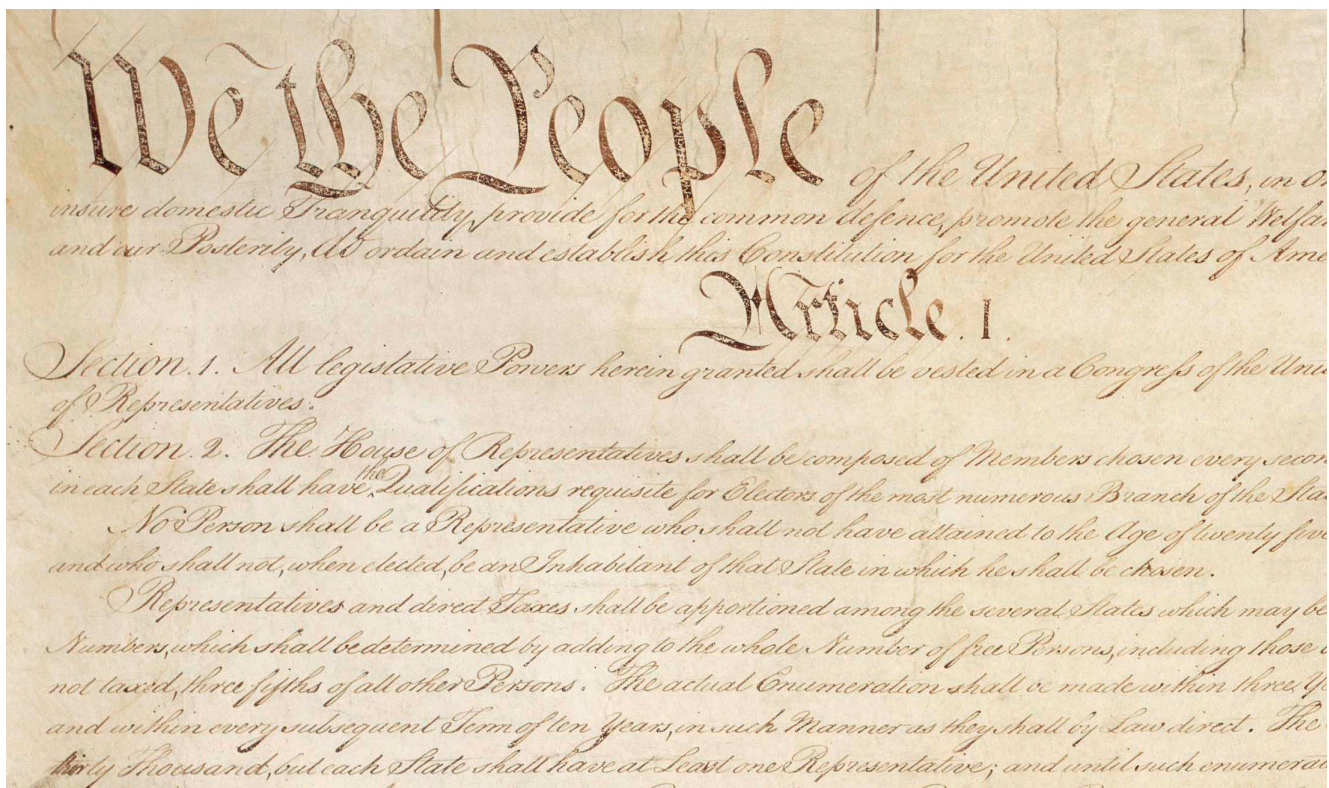 We the People of the United States, in Or
insure domestic Tranquility, provide for the common defence, promote the general Welfar
and our Posterity, do ordain and establish this Constitution for the United States of Ame
Article. I.
Section. 1. All legislative Powers herein granted shall be vested in a Congress of the Uni
of Representatives.
Section. 2. The House of Representatives shall be composed of Members chosen every secon
in each State shall have the Qualifications requisite for Electors of the most numerous Branch of the Sta
No Person shall be a Representative who shall not have attained to the Age of twenty five
and who shall not, when elected, be an Inhabitant of that State in which he shall be chosen.
Representatives and direct Taxes shall be apportioned among the several States which may be
Numbers, which shall be determined by adding to the whole Number of free Persons, including those
not taxed, three fifths of all other Persons. The actual Enumeration shall be made within three Ye
and within every subsequent Term of ten Years, in such Manner as they shall by Law direct. The
thirty Thousand, but each State shall have at Least one Representative; and until such enumerat